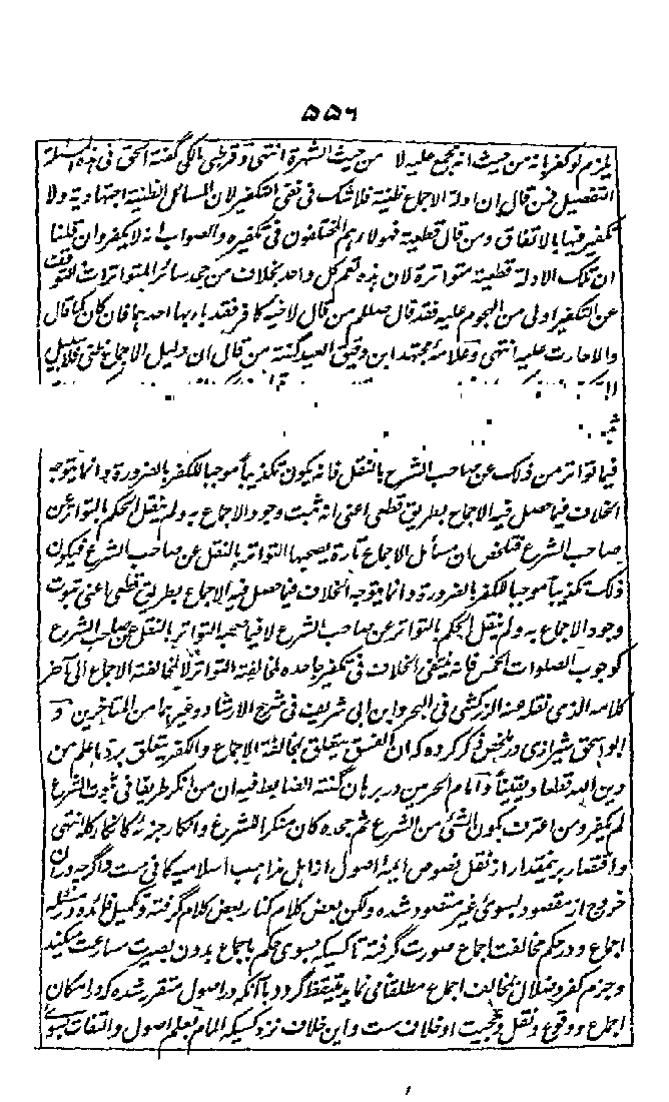 ۵۵۶
یلزم لو کفر بانه من حیث انه مجمع علیه لا من حیث الشهرة انتهی و قرطبی مالکی گفته الحق فی هذه المسئلة
التفصیل فمن قال ان ادلة الاجماع ظنیة فلا شک فی نفی التکفیر لان المسائل الظنیة اجتهادیة ولا
تکفیر فیها بالاتفاق ومن قال قطعیة فهولاء هم المختلفون فی تکفیره والصواب انه لا یکفر وان قلنا
ان تلک الادلة قطعیة متواترة لان هذه تعم کل واحد بخلاف من جحد سائر المتواترات التوقف
عن التکفیر اولی من الهجوم علیه فقد قال صللم من قال لاخیه کافر فقد باء بها احدهما فان کان کما قال
والا حارت علیه انتهی و علامه مجتهد ابن دقیق العید گفته من قال ان دلیل الاجماع ظنی فلا سبیل
فیما تواتر من ذلک عن صاحب الشرع بالنقل فانه یکون تکذیباً موجبا للکفر بالضرورة وانما یتوجه
الخلاف فیما حصل فیه الاجماع بطریق قطعی اعنی انه ثبت وجود الاجماع به ولم ینقل الحکم بالتواتر عن
صاحب الشرع فتلخص ان مسائل الاجماع تارة یصحبها التواتر بالنقل عن صاحب الشرع فیکون
ذلک تکذیباً موجبا للکفر بالضرورة وانما یتوجه الخلاف فیما حصل فیه الاجماع بطریق قطعی اعنی ثبوت
وجود الاجماع به ولم ینقل الحکم بالتواتر عن صاحب الشرع لا فیما صحبه التواتر بالنقل عن صاحب الشرع
کوجوب الصلوات الخمس فانه ینتفی الخلاف فی تکفیر جاحده لمخالفته التواتر لا لمخالفته الاجماع الی آخر
کلامه الذی نقله عنه الزرکشی فی البحر وابن ابی شریف فی شرح الارشاد وغیرهما من المتاخرین و
ابو اسحق شیرازی در ملخص ذکر کرده که ان الفسق یتعلق بمخالفة الاجماع والکفر یتعلق برد ما علم من
دین الله قطعا و یقیناً و امام الحرمین در برهان گفته الضابط فیه ان من انکر طریقا فی ثبوت الشرع
لم یکفر ومن اعترف بکون الشئ من الشرع ثم جحده کان منکرا للشرع وانکار جزئه کانکار کله انتهی
و اقتصار برینمقدار از نقل نصوص ائمهٔ اصول از اهل مذاهب اسلامیه کافی ست و اگرچه دران
خروج از مقصود بسوی غیر مقصود شده ولکن بعض کلام کنار بعض کلام گرفته و تکمیل فائده در مسئله
اجماع و در حکم مخالفت اجماع صورت گرفته تا کسیکه بسوی حکم باجماع بدون بصیرت مسارعت میکند
و جزم کفر و ضلال مخالف اجماع مطلقا می نماید متیقظ گردد با آنکه در اصول متقرر شده که در امکان
اجماع و وقوع و نقل و حجیت او خلاف ست و این خلاف نزد کسیکه المام بعلم اصول و التفات بسوی